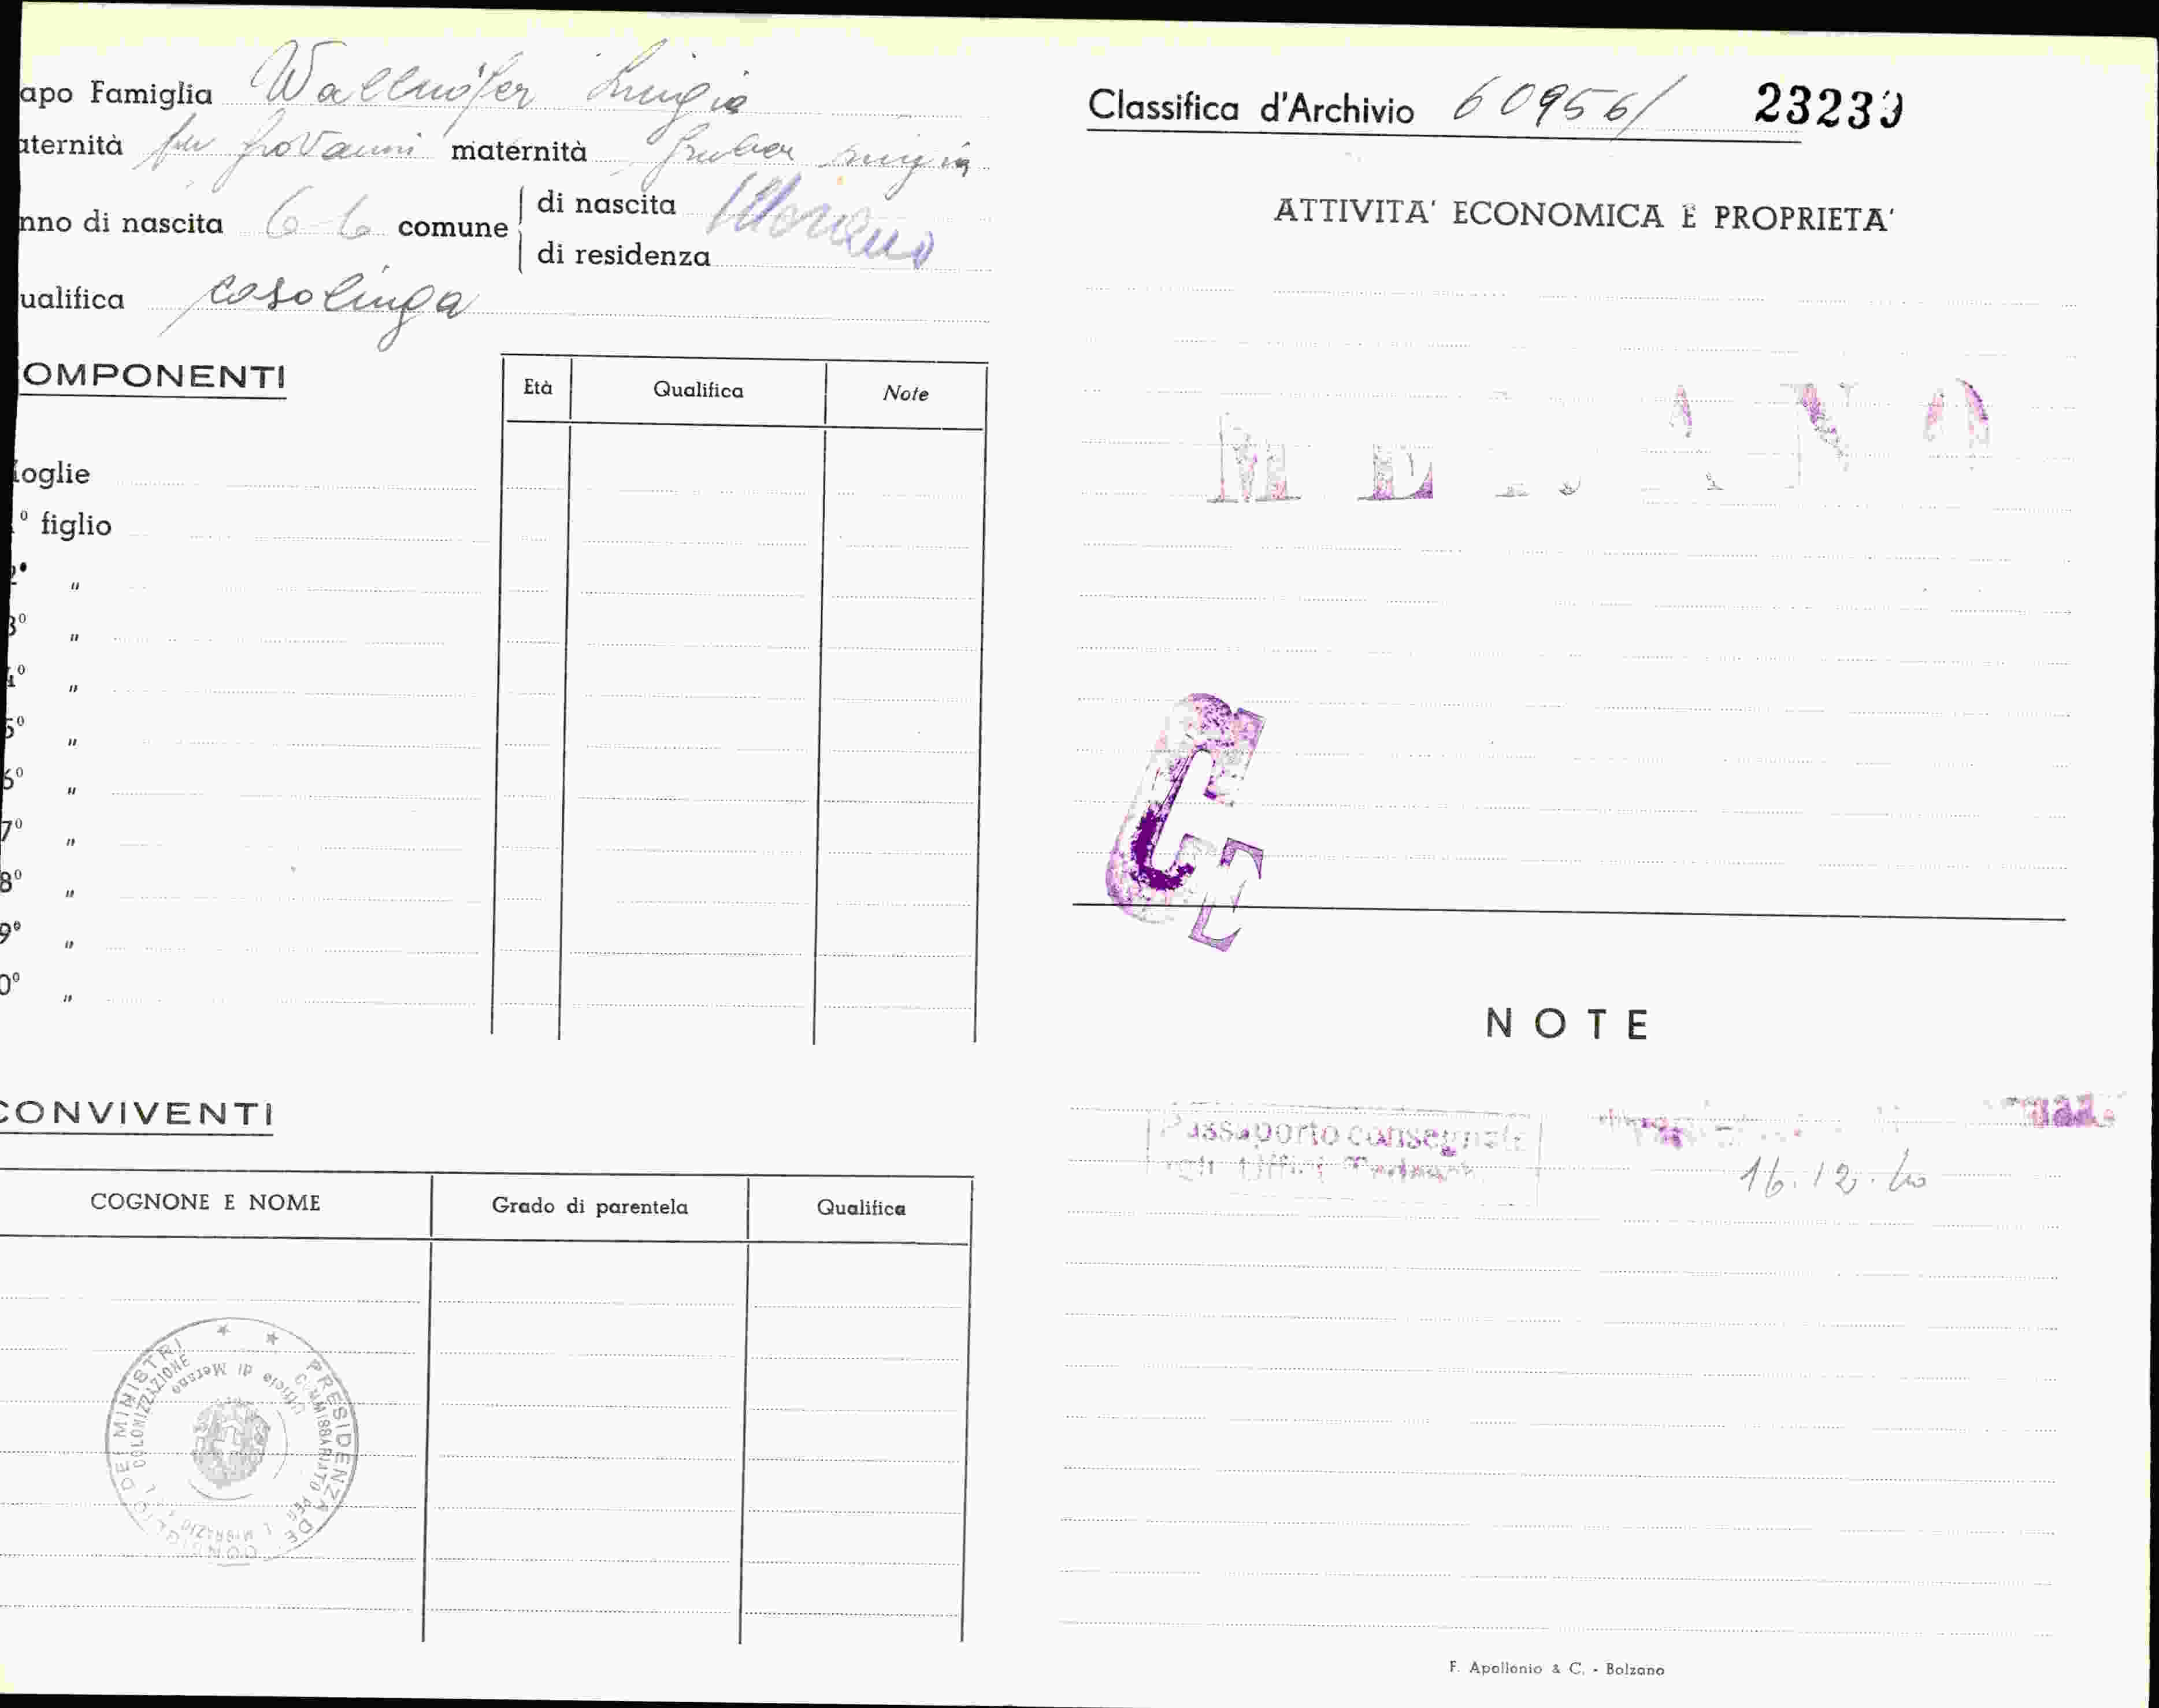 apo Famiglia Wallnöfer Luigia
aternità fu Giovanni maternità Gruber Luigia
nno di nascita 6-6 comune di nascita Merano
di residenza
ualifica casalinga
OMPONENTI
Età Qualifica Note
oglie
° figlio
2° "
3° "
4° "
5° "
6° "
7° "
8° "
9° "
0° "
CONVIVENTI
COGNONE E NOME Grado di parentela Qualifica
PRESIDENZA DEL CONSIGLIO DEI MINISTRI
COMMISSARIATO PER L MIGRAZIO COLONIZZAZIONE
Ufficio di Merano
Classifica d'Archivio 60956/ 23239
ATTIVITA' ECONOMICA E PROPRIETA'
MERANO
C
E
NOTE
Passaporto consegnato
agli Uffici
16.12.40
F. Apollonio & C. - Bolzano